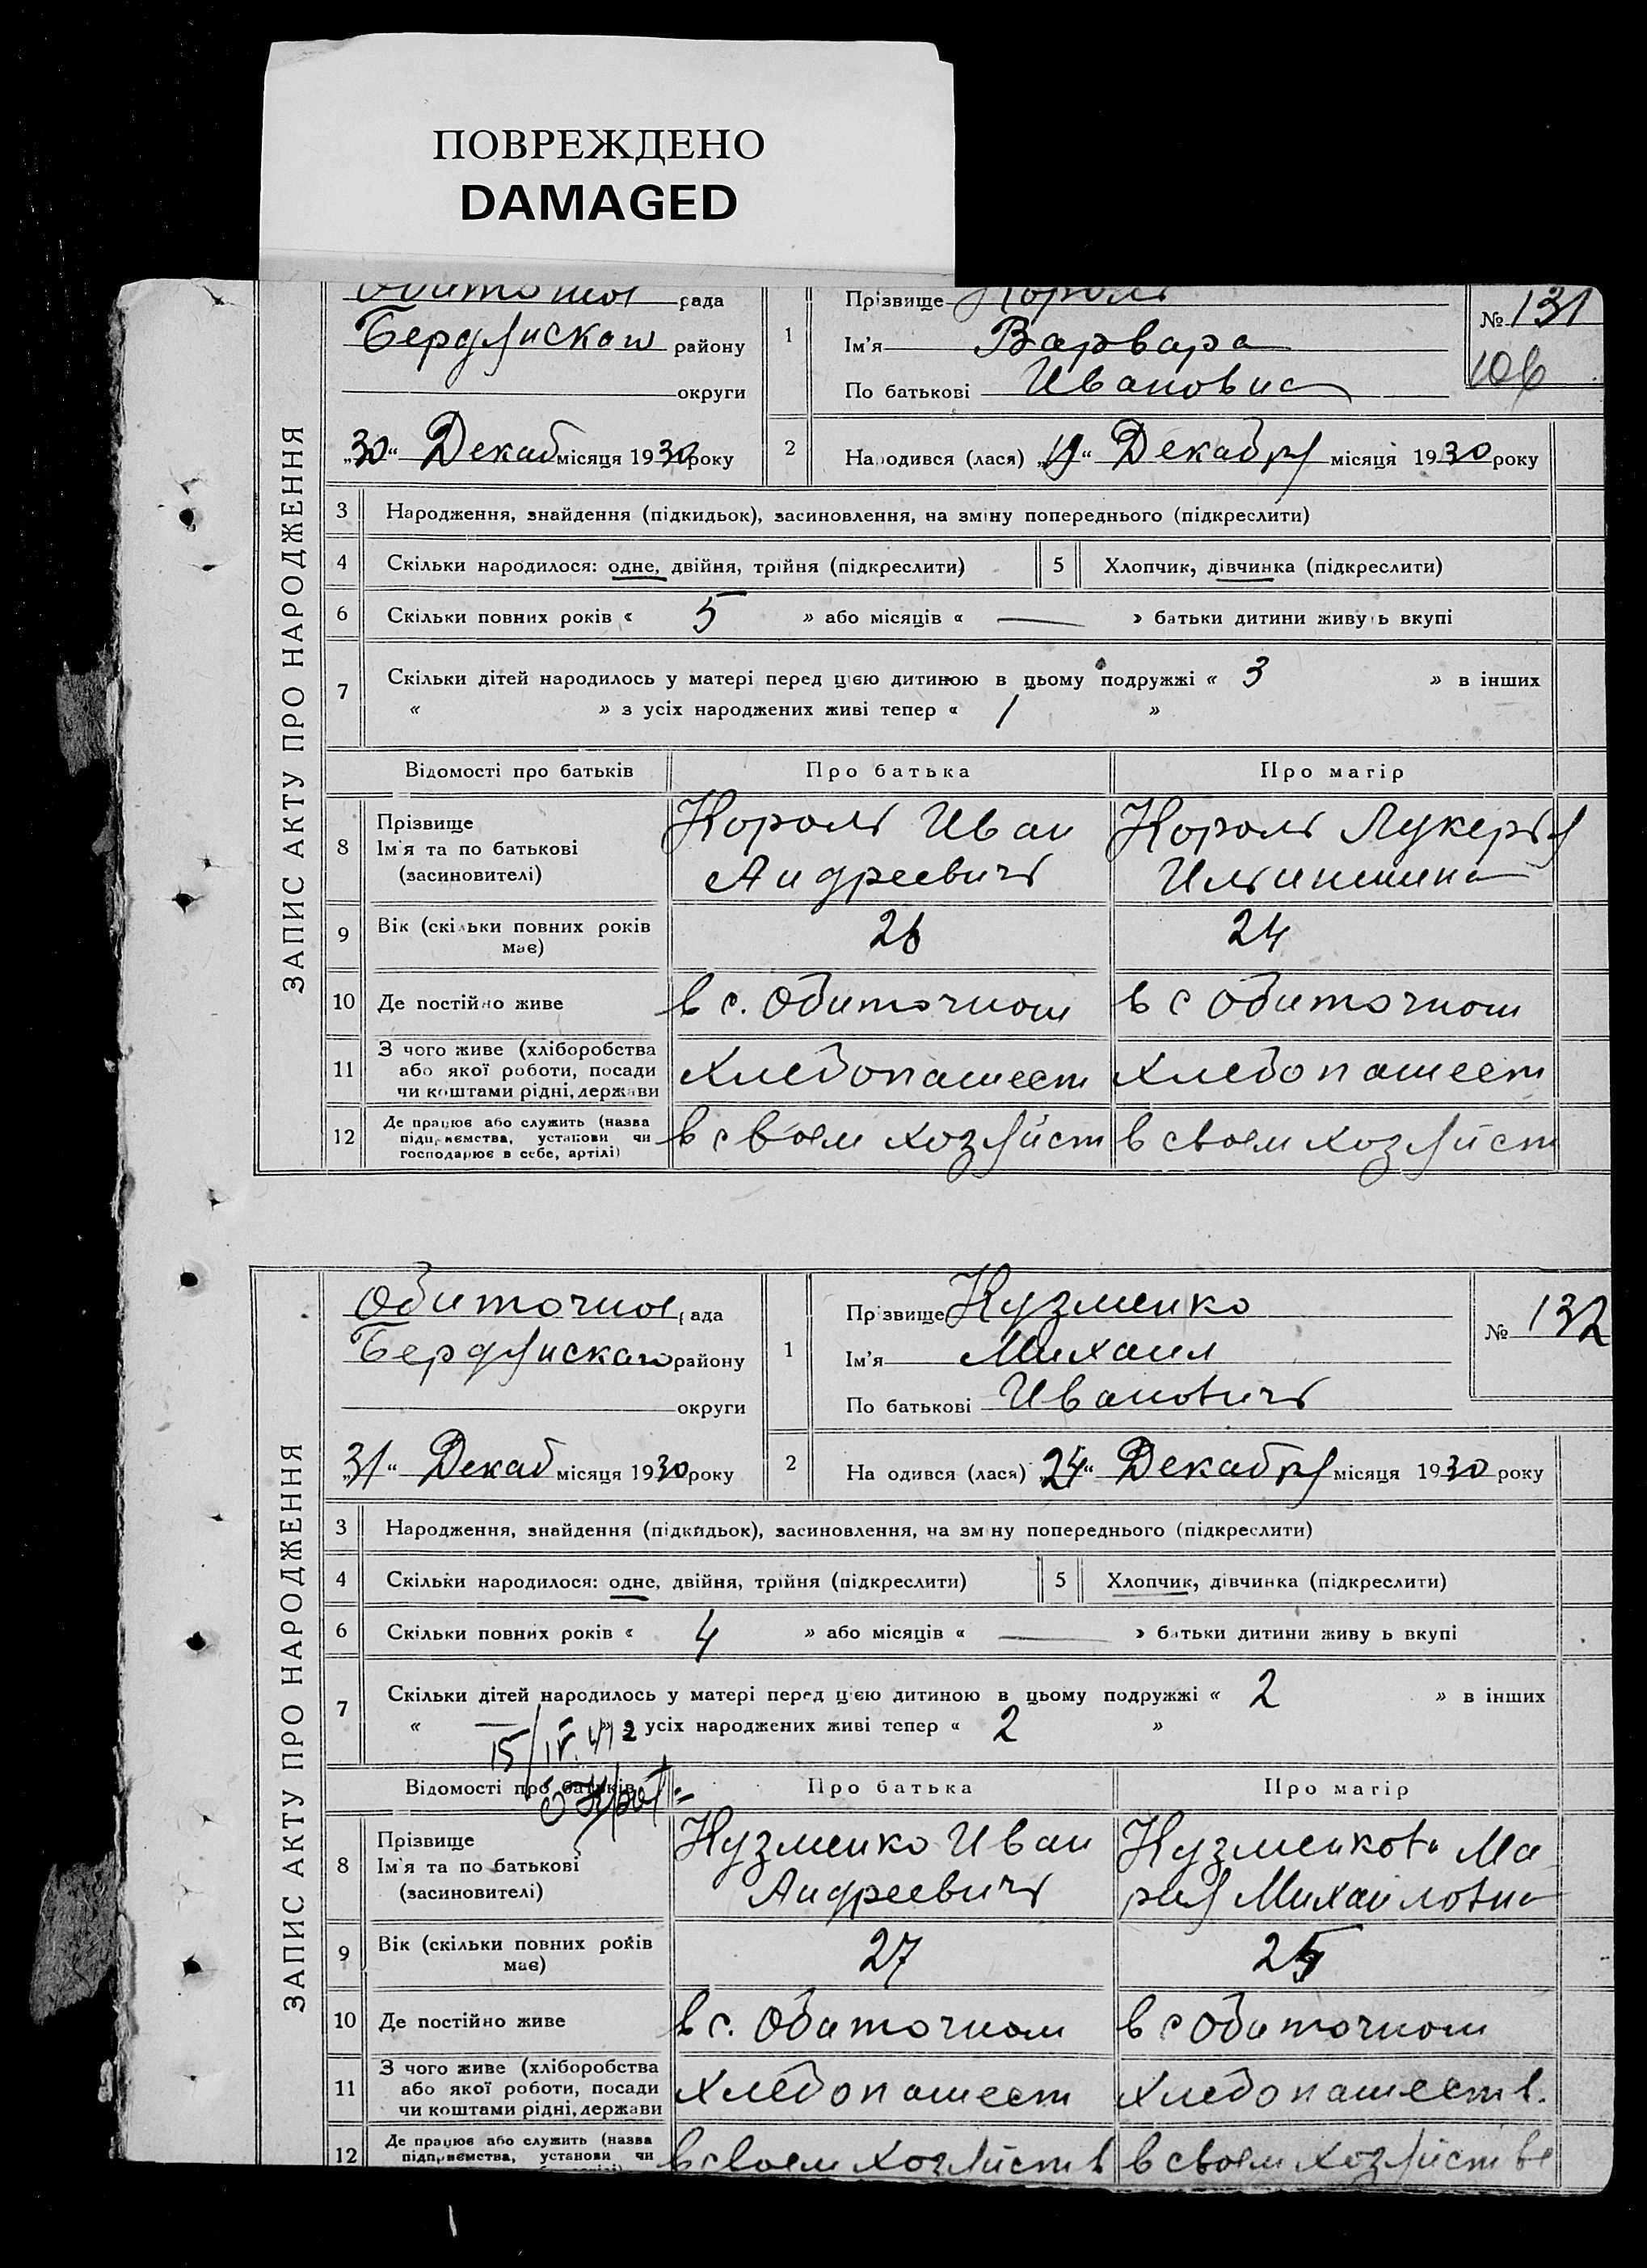 ПОВРЕЖДЕНО
DAMAGED
ЗАПИС АКТУ ПРО НАРОДЖЕННЯ
Обиточная рада
Бердянскаго району
округи
„30“ Декаб місяця 1930 року
1
Прізвище Король
Ім'я Варвара
По батькові Ивановна
№ 131
106
2
Народився (лася) „19“ Декабря місяця 1930 року
3 Народження, знайдення (підкидьок), засиновлення, на зміну попереднього (підкреслити)
4 Скільки народилося: одне, двійня, трійня (підкреслити) 5 Хлопчик, дівчинка (підкреслити)
6 Скільки повних років « 5 » або місяців « — » батьки дитини живуть вкупі
7 Скільки дітей народилось у матері перед цією дитиною в цьому подружжі « 3 » в інших
« » з усіх народжених живі тепер « 1 »
Відомості про батьків Про батька Про матір
8 Прізвище
Ім'я та по батькові
(засиновителі)
Король Иван
Андреевичъ
Король Лукерья
9 Вік (скільки повних років
має)
26
24
10 Де постійно живе в с. Обиточном в с Обиточном
11 З чого живе (хліборобства
або якої роботи, посади
чи коштами рідні, держави
хлебопашест хлебопашест
12 Де працює або служить (назва
підприємства, установи чи
господарює в себе, артілі)
в своем хозяйст в своем хозяйст
ЗАПИС АКТУ ПРО НАРОДЖЕННЯ
Обиточная рада
Бердянскаго району
округи
„31“ Декаб місяця 1930 року
1
Прізвище Кузменко
Ім'я Михаил
По батькові Ивановичъ
№ 132
2
Народився (лася) „24“ Декабря місяця 1930 року
3 Народження, знайдення (підкидьок), засиновлення, на зміну попереднього (підкреслити)
4 Скільки народилося: одне, двійня, трійня (підкреслити) 5 Хлопчик, дівчинка (підкреслити)
6 Скільки повних років « 4 » або місяців « — » батьки дитини живуть вкупі
7 Скільки дітей народилось у матері перед цією дитиною в цьому подружжі « 2 » в інших
« — » з усіх народжених живі тепер « 2 »
15/IV.
Відомості про батьків Про батька Про матір
8 Прізвище
Ім'я та по батькові
(засиновителі)
Кузменко Иван
Андреевичъ
Кузменкова Ма
рия Михаиловна
9 Вік (скільки повних років
має)
27
25
10 Де постійно живе в с. Обиточном в с Обиточном
11 З чого живе (хліборобства
або якої роботи, посади
чи коштами рідні, держави
хлебопашест хлебопашеств.
12 Де працює або служить (назва
підприємства, установи чи
в своем хозяйств в своем хозяйстве